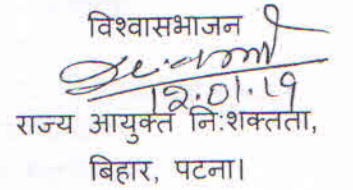 विश्वासभाजन
12.01.19
राज्य आयुक्त निःशक्तता,
बिहार, पटना।